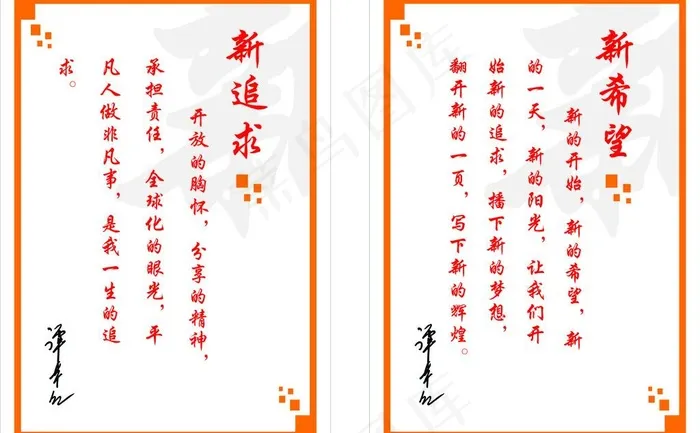 新追求
开放的胸怀，分享的精神，
承担责任，全球化的眼光，平
凡人做非凡事，是我一生的追
求。
新希望
新的开始，新的希望，新
的一天，新的阳光，让我们开
始新的追求，播下新的梦想，
翻开新的一页，写下新的辉煌。